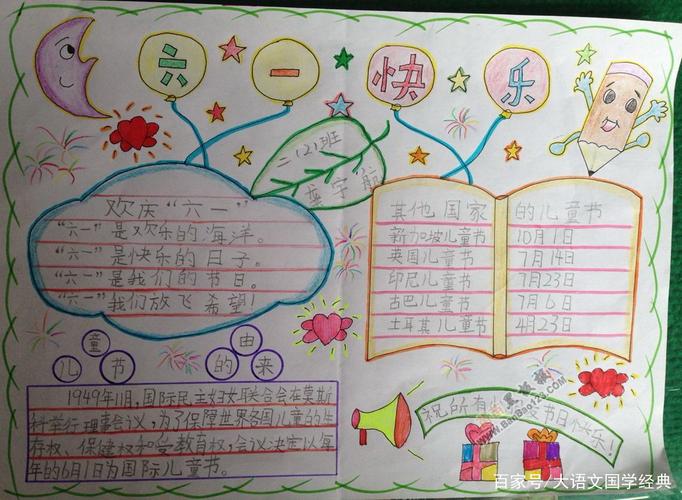 六一快乐
二(2)班
宇航
欢庆“六一”
“六一”是欢乐的海洋。
“六一”是快乐的日子。
“六一”是我们的节日。
“六一”我们放飞希望!
其他国家的儿童节
新加坡儿童节 10月1日
英国儿童节 7月14日
印尼儿童节 7月23日
古巴儿童节 7月6日
土耳其儿童节 4月23日
儿童节的由来
1949年11月,国际民主妇女联合会在莫斯
科举行理事会议,为了保障世界各国儿童的生
存权、保健权和受教育权,会议决定以每
年的6月1日为国际儿童节。
祝所有小友节日快乐!
百家号/大语文国学经典